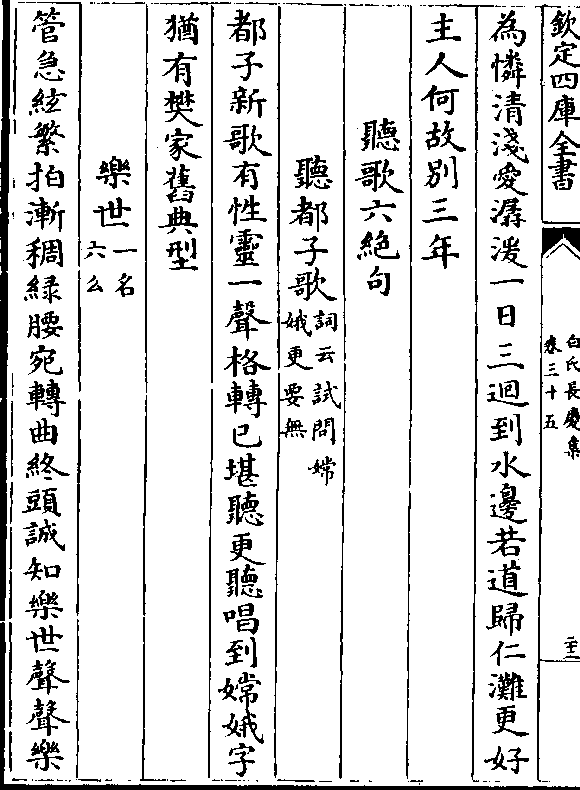 欽定四庫全書
白氏長慶集
卷三十五
二十二
為憐清淺愛潺湲一日三迴到水邊若道歸仁灘更好
主人何故別三年
聽歌六絕句
聽都子歌
詞云試問嫦
娥更要無
都子新歌有性靈一聲格轉已堪聽更聽唱到嫦娥字
猶有樊家舊典型
樂世
一名
六么
管急絃繁拍漸稠綠腰宛轉曲終頭誠知樂世聲聲樂